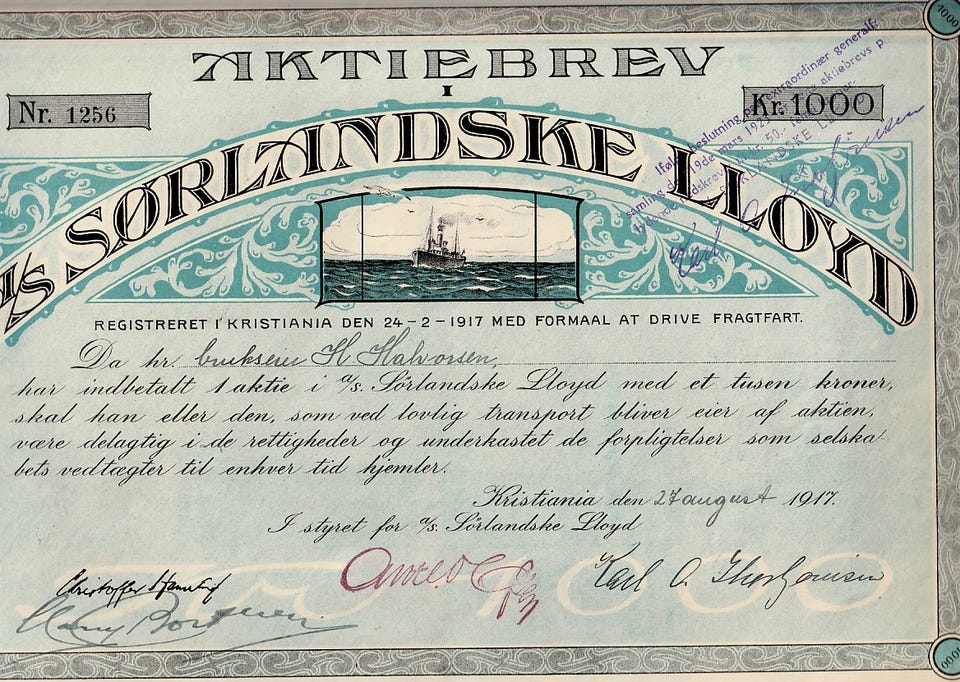 AKTIEBREV
I
Nr. 1256
Kr. 1000
1000
A/S SØRLANDSKE LLOYD
Ifølge beslutning extraordinær generalf.
samling d. 19de mars 192 aktiebrevs p
nedskrev kr. 50.-
SØRLANDSKE LL
Karl O.
REGISTRERET I KRISTIANIA DEN 24-2-1917 MED FORMAAL AT DRIVE FRAGTFART.
Da hr. H. Halvorsen,
har indbetalt 1 aktie i a/s. Sörlandske Lloyd med et tusen kroner,
skal han eller den, som ved lovlig transport bliver eier af aktien,
være delagtig i de rettigheder og underkastet de forpligtelser som selska-
bets vedtægter til enhver tid hjemler.
Kristiania den 27 august 1917.
I styret for a/s. Sörlandske Lloyd
Christoffer Hannevig
Karl O.
1000
1000